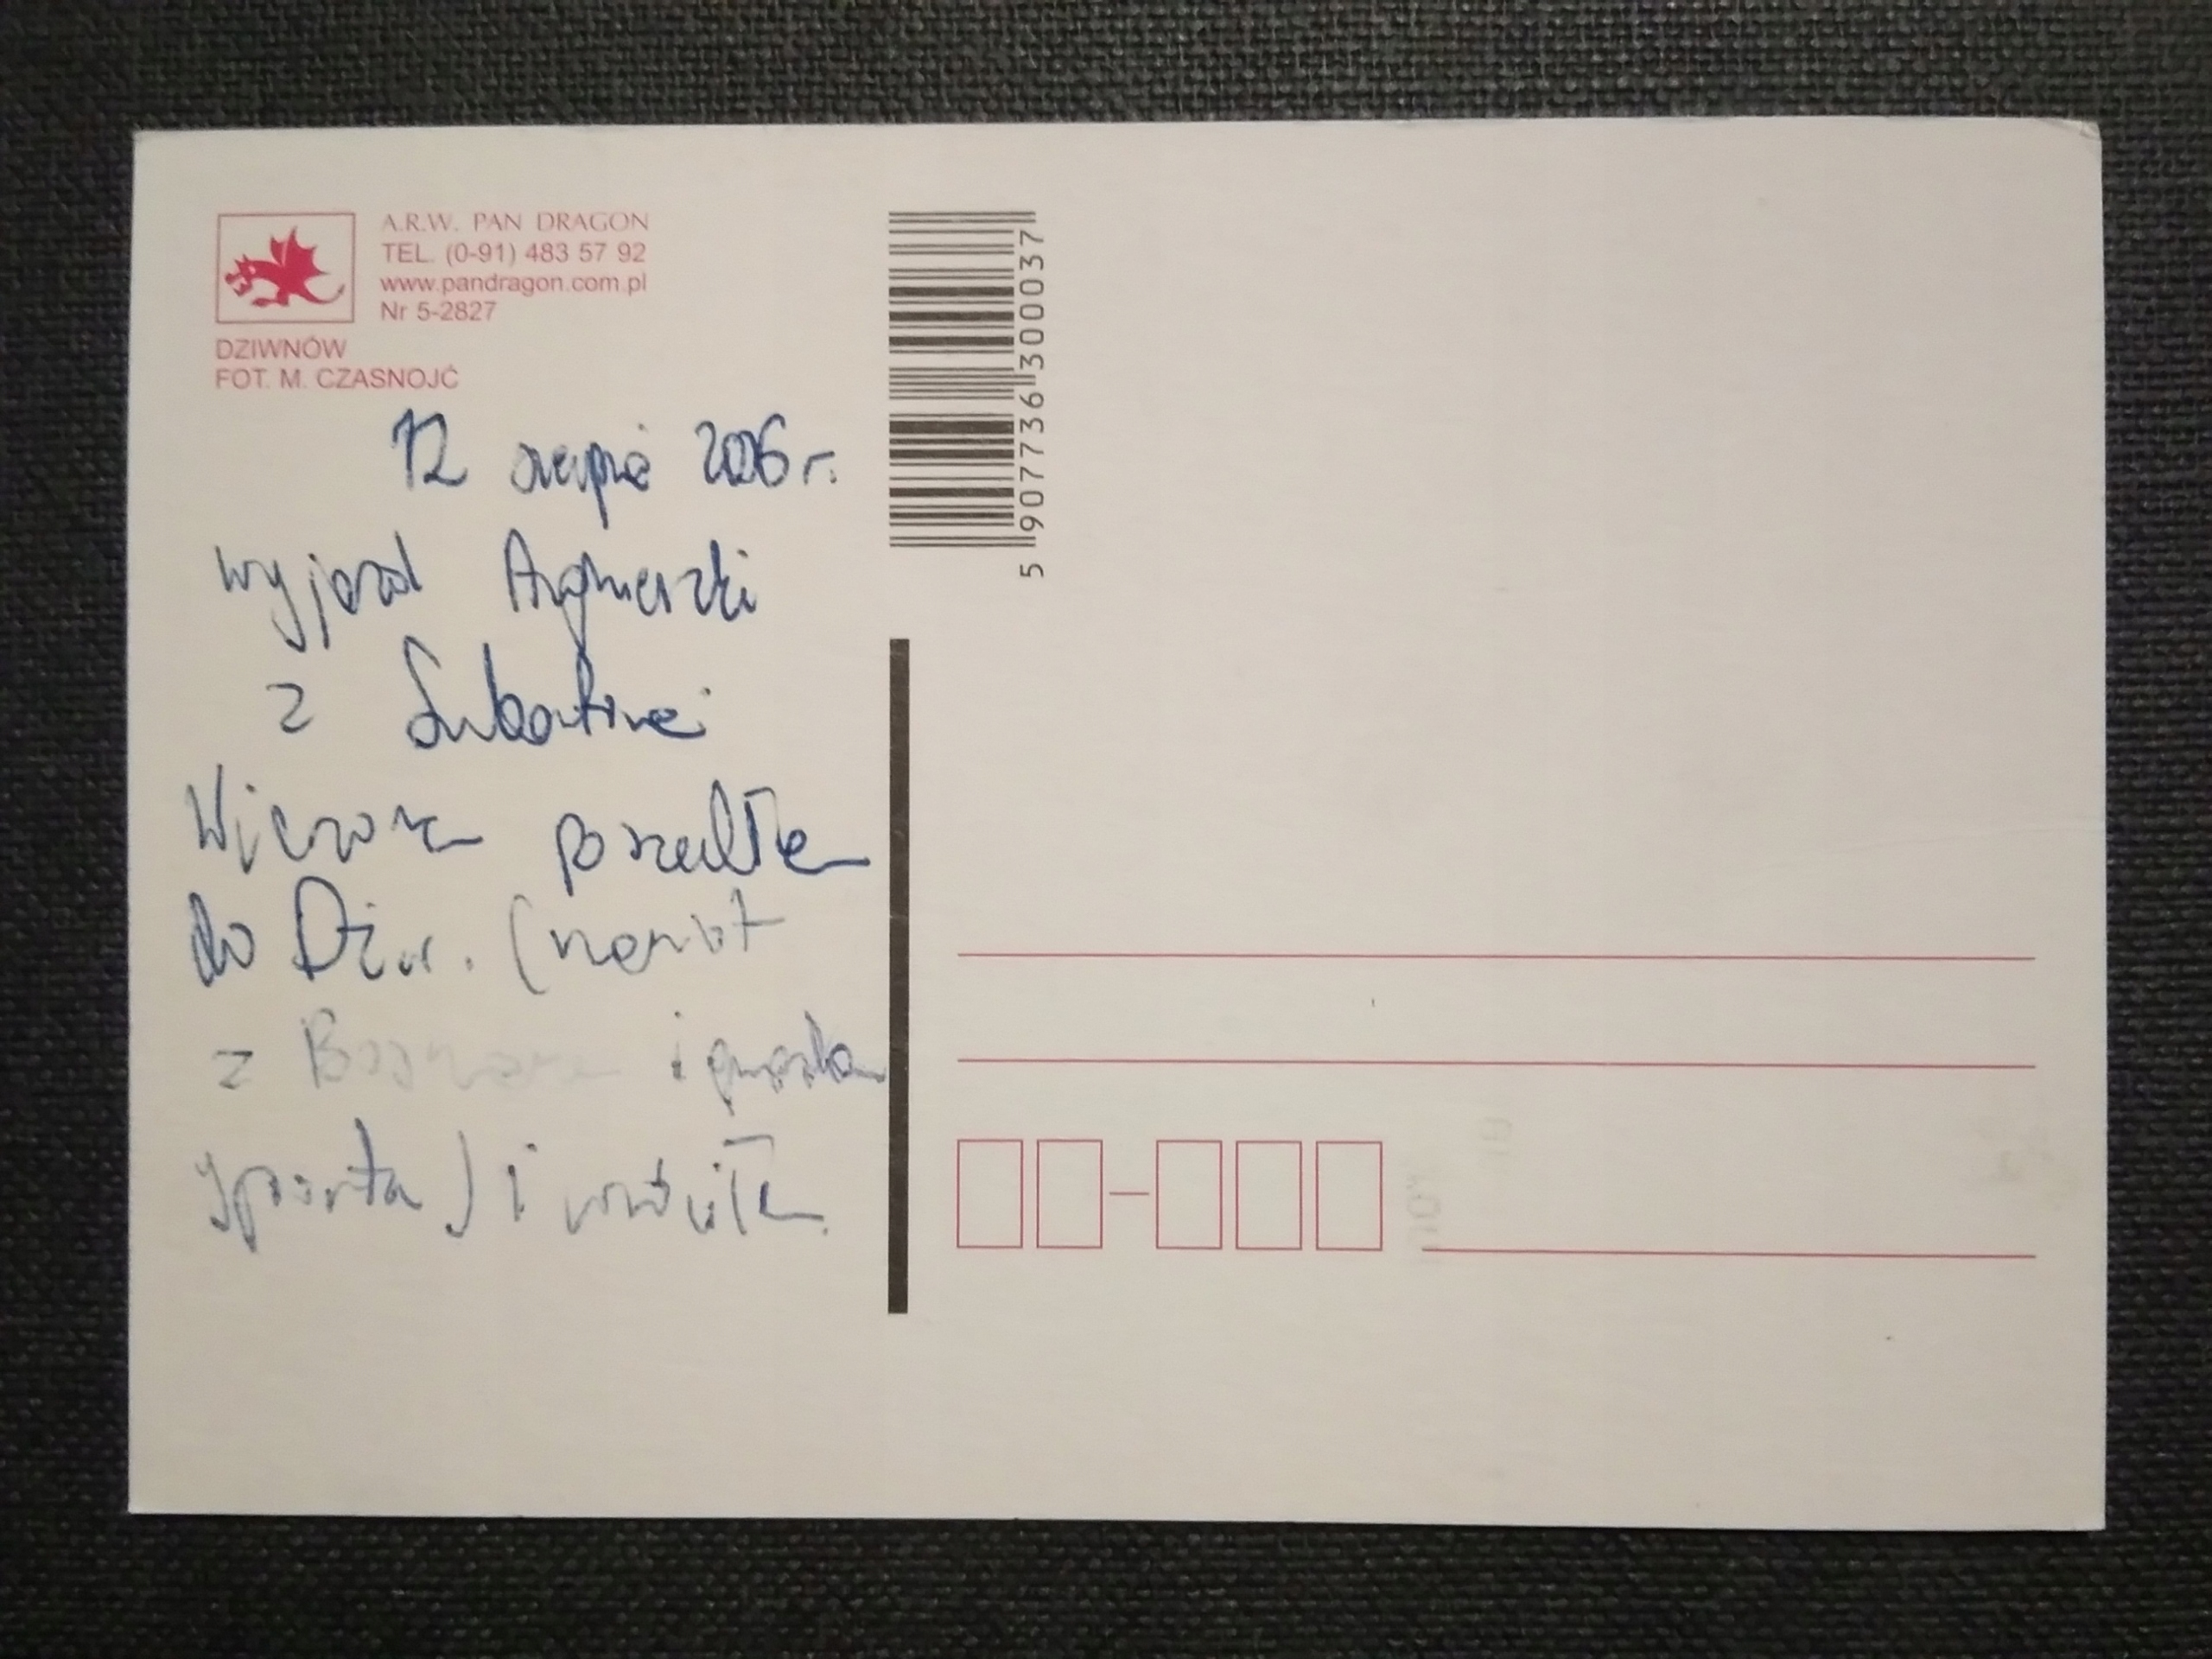 A.R.W. PAN DRAGON
TEL. (0-91) 483 57 92
www.pandragon.com.pl
Nr 5-2827
DZIWNÓW
FOT. M. CZASNOJĆ
5 907736 300037
12 sierpnia 2006 r.
wyjazd Agnieszki
z
Wieczorem poszedłem
do Dziw. (namiot
z i
) i wróciłem.